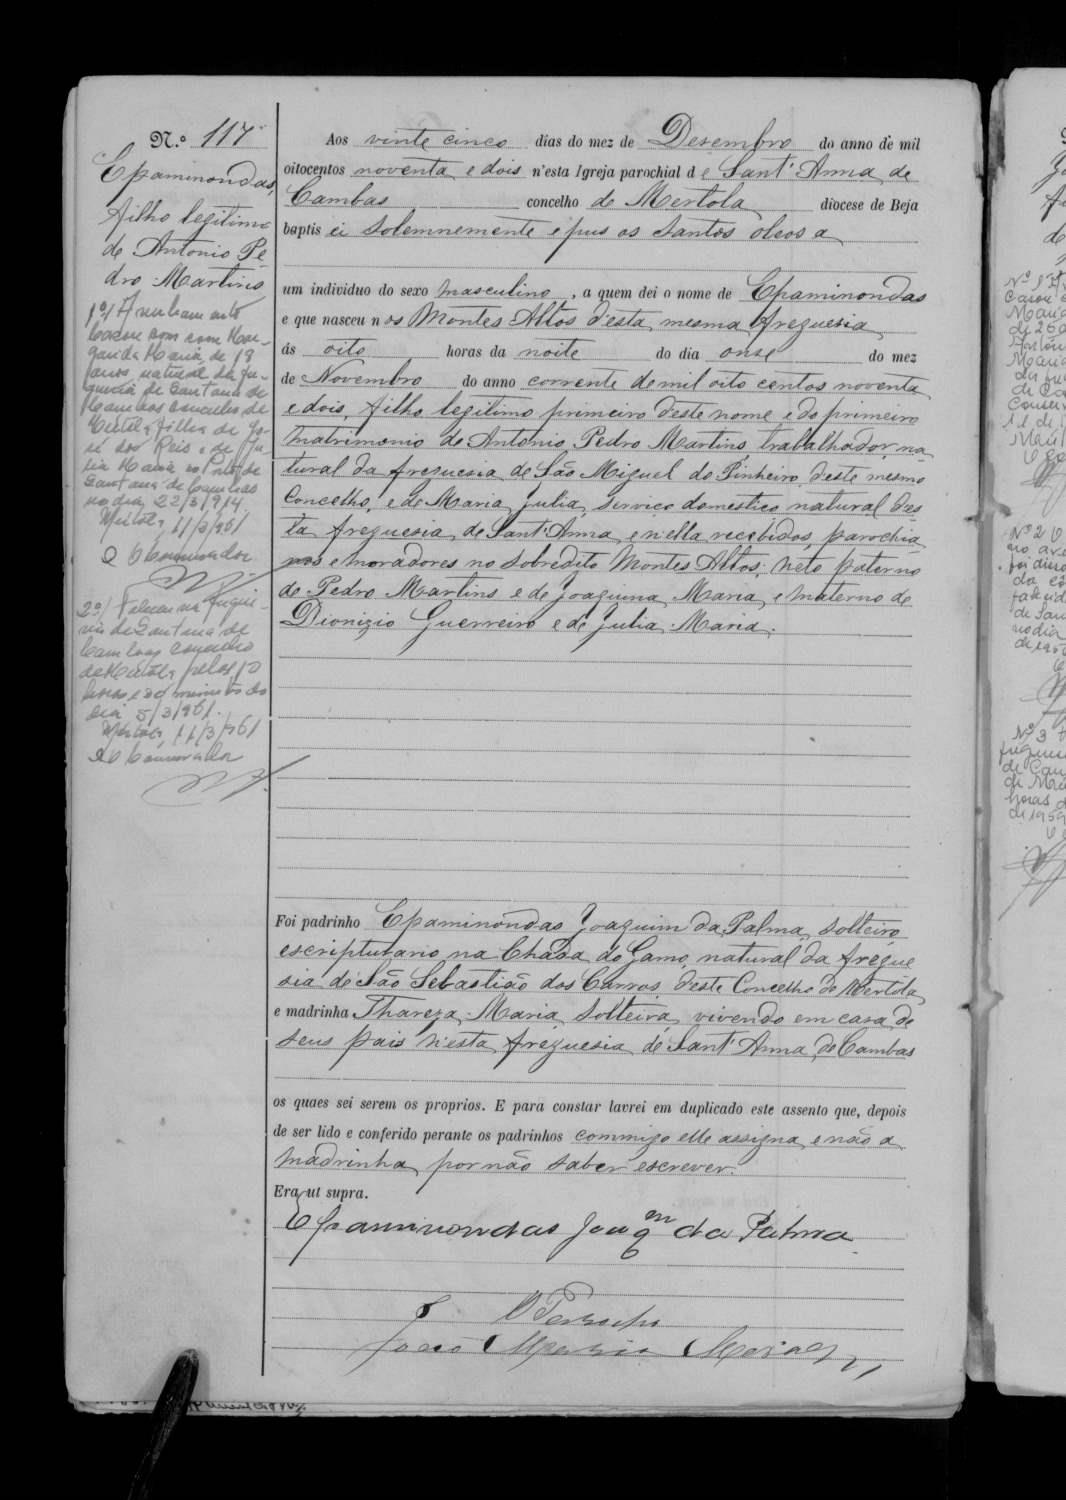 N.º 117
Epaminondas,
filho legitimo
de Antonio Pe
dro Martins
1º/ Averbamento
Casou com com Mar-
garida Maria de 18
anos, natural da fre-
guesia de Santana de
Cambas concelho de
Mertola filha de Jo-
sé dos Reis e de Ju-
lia Maria no
Santana de Cambas
no dia 22/3/914
Mértola, 11/3/961
O Conservador
2º/ Faleceu na fregue-
sia de Santana de
Cambas concelho
de Mértola pelas
horas e 30 minutos do
dia 5/3/961.
Mértola, 11/3/961
O Conservador
Aos vinte cinco dias do mez de Desembro do anno de mil
oitocentos noventa e dois n'esta Igreja parochial de Sant'Anna de
Cambas concelho de Mertola diocese de Beja
baptisei solemnemente e pus os santos oleos a
um individuo do sexo masculino, a quem dei o nome de Epaminondas
e que nasceu nos Montes Altos d'esta mesma freguesia
ás oito horas da noite do dia onse do mez
de Novembro do anno corrente de mil oito centos noventa
e dois, filho legitimo primeiro deste nome e do primeiro
matrimonio de Antonio Pedro Martins, trabalhador, na-
tural da freguesia de São Miguel do Pinheiro deste mesmo
Concelho, e de Maria Julia, serviço domestico natural des-
ta freguesia de Sant'Anna e n'ella recebidos, parochia
nos e moradores no sobredito Montes Altos; neto paterno
de Pedro Martins e de Joaquina Maria, e materno de
Dionizio Guerreiro e de Julia Maria.
Foi padrinho Epaminondas Joaquim da Palma, solteiro
escripturario na Chada do Gamo, natural da fregue
sia de São Sebastião dos Carros, deste Concelho de Mertola
e madrinha Thareza Maria, solteira, vivendo em casa de
seus pais n'esta freguesia de Sant'Anna de Cambas
os quaes sei serem os proprios. E para constar lavrei em duplicado este assento que, depois
de ser lido e conferido perante os padrinhos commigo elle assigna, e não a
madrinha por não saber escrever.
Era ut supra.
Epaminondas Joaqm da Palma
O Parocho
João Maria